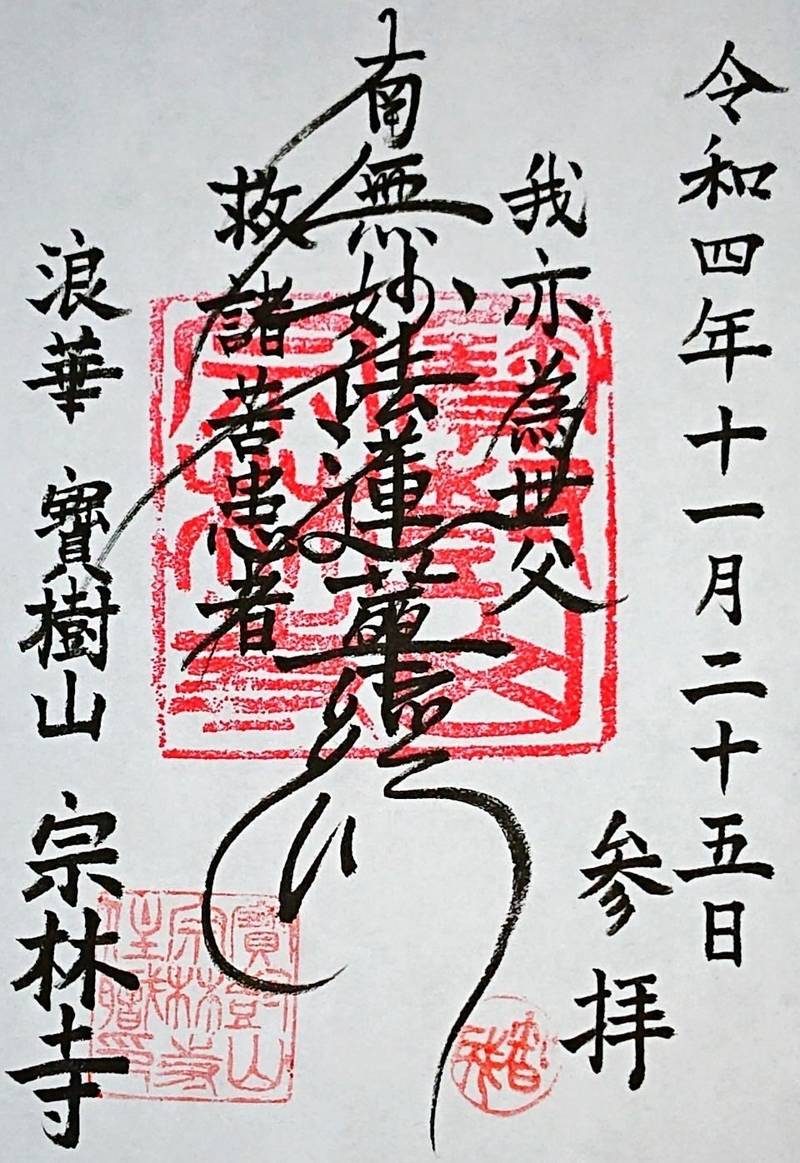 令和四年十一月二十五日
参拝
我亦為世父
南無妙法蓮華経
救諸苦患者
浪華 寶樹山 宗林寺
寶樹山
宗林寺
住職印